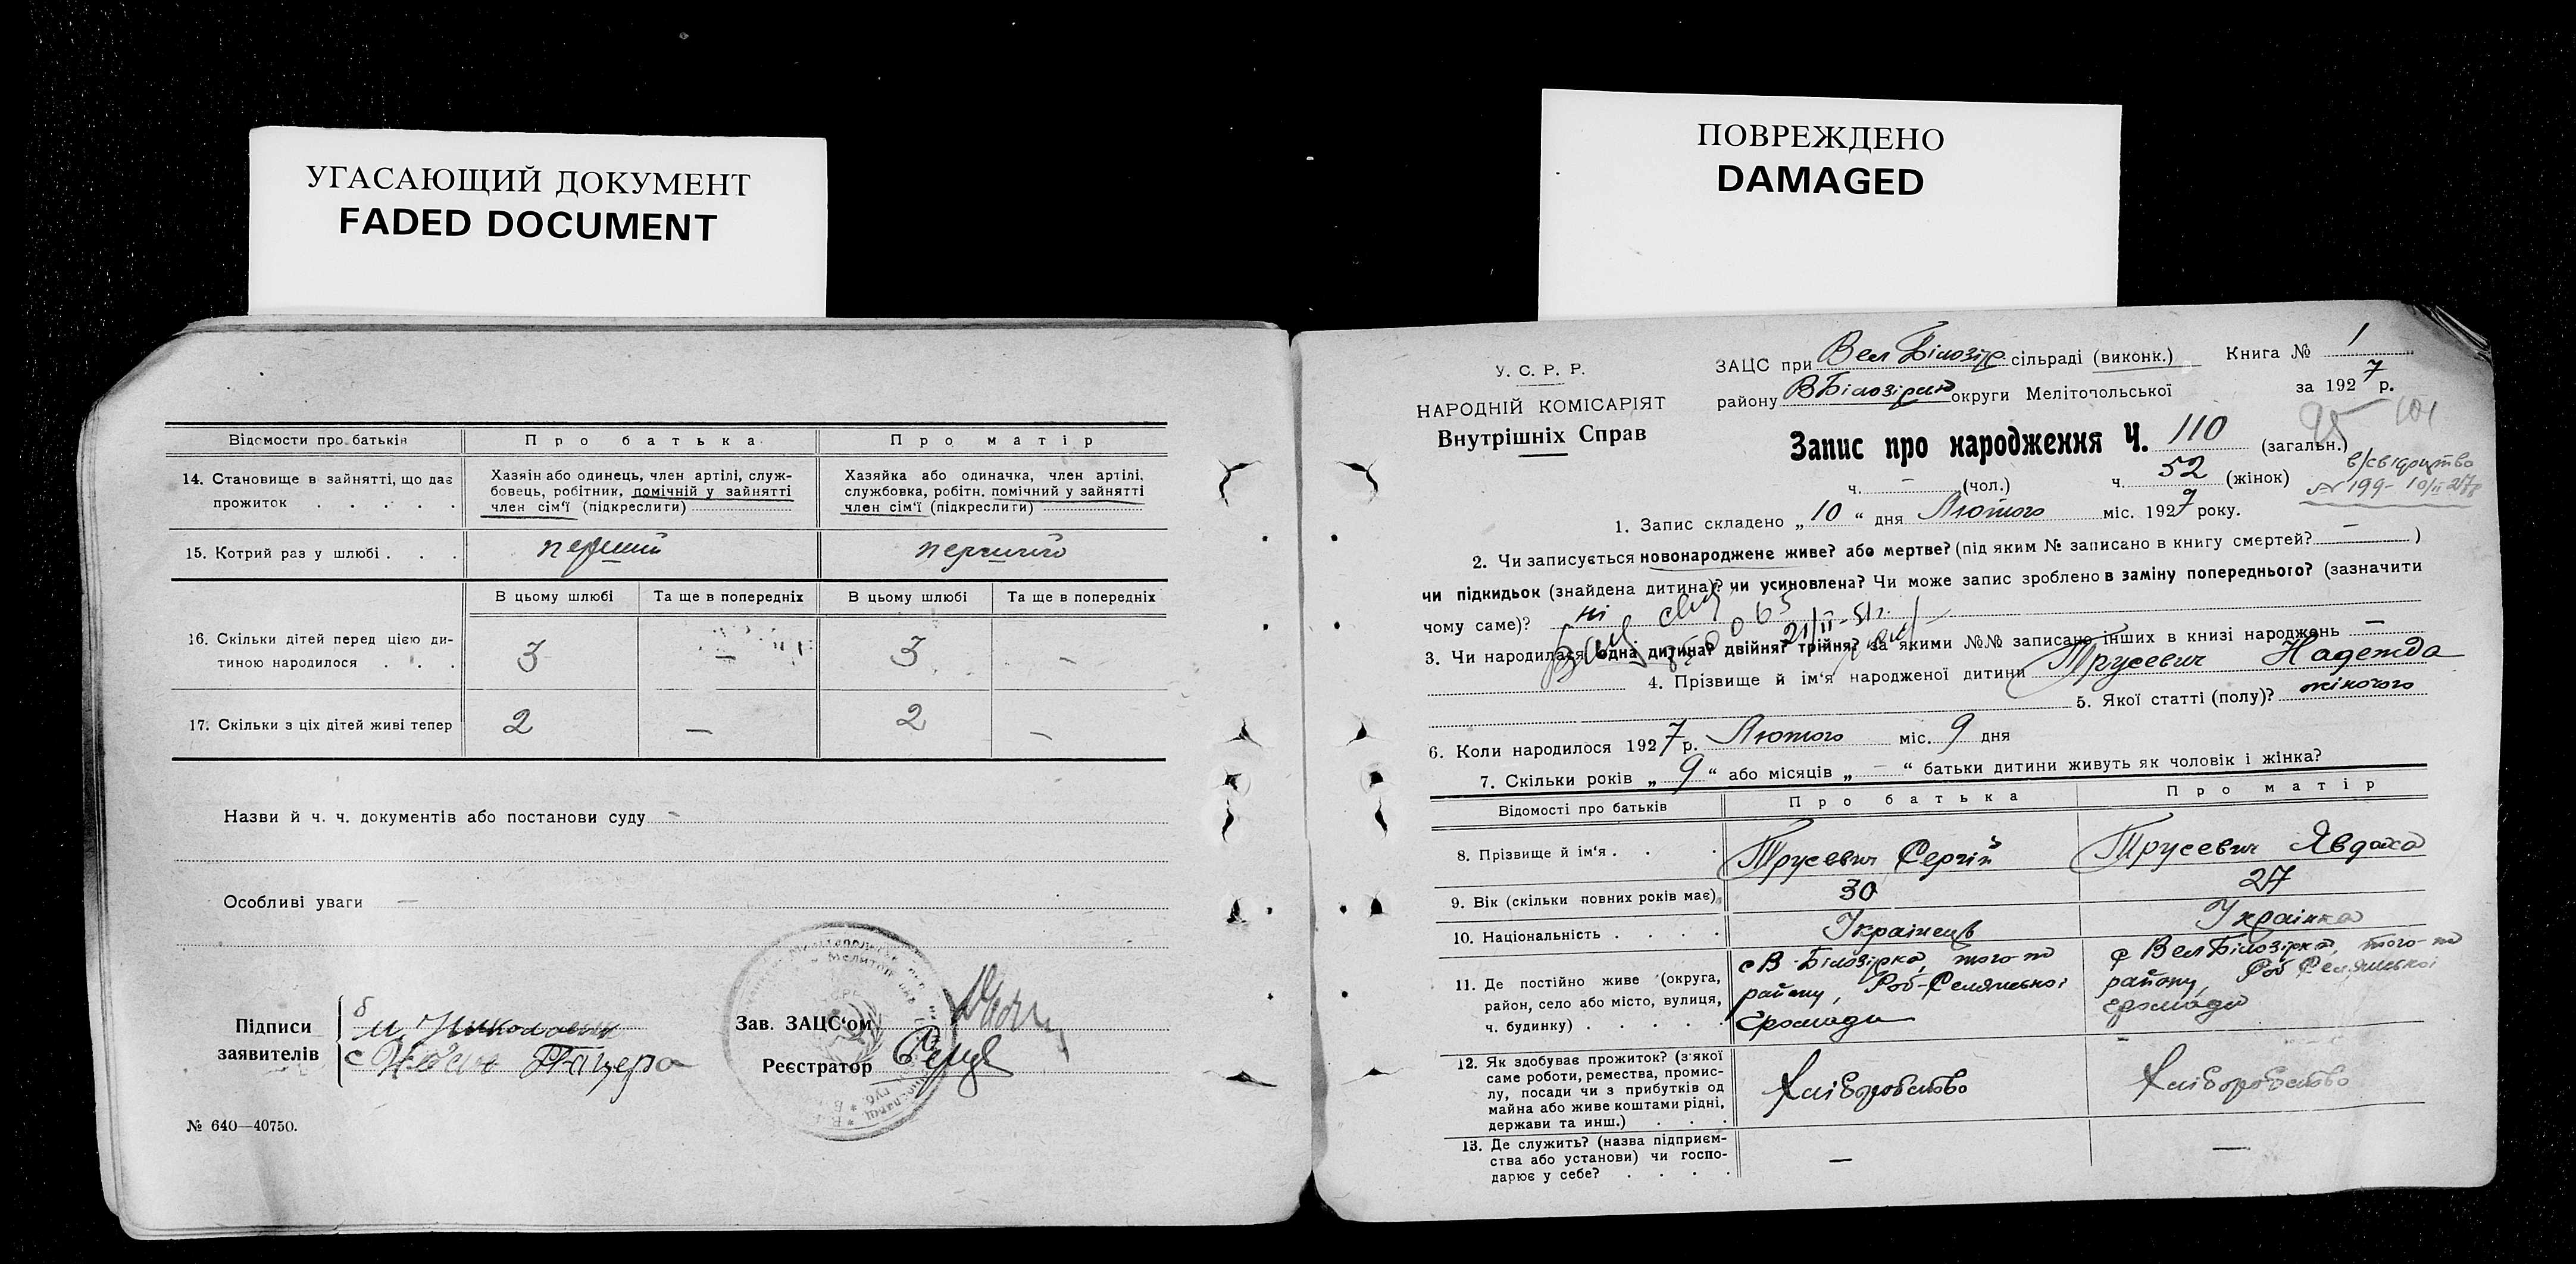 УГАСАЮЩИЙ ДОКУМЕНТ
FADED DOCUMENT
Відомости про батьків
Про батька
Про матір
14. Становище в зайнятті, що дає
прожиток . . . . .
Хазяін або одинець, член артілі, служ-
бовець, робітник, помічній у зайнятті
член сім'ї (підкреслити)
Хазяйка або одиначка, член артілі,
службовка, робітн. помічний у зайнятті
член сім'ї (підкреслити)
15. Котрий раз у шлюбі . . .
перший
В цьому шлюбі
Та ще в попередніх
В цьому шлюбі
Та ще в попередніх
16. Скільки дітей перед цією ди-
тиною народилося . . .
3 — 3 —
17. Скільки з ціх дітей живі тепер
2 — 2 —
Назви й ч. ч. документів або постанови суду —
Особливі уваги —
Підписи
заявителів
Зав. ЗАЦС'ом
Реєстратор
№ 640—40750.
ПОВРЕЖДЕНО
DAMAGED
У. С. Р. Р.
НАРОДНІЙ КОМІСАРІЯТ
Внутрішніх Справ
ЗАЦС при Вел Білозір сільраді (виконк.)
Книга № 1
району ВБілозірск округи Мелітопольської
за 1927 р.
95 101
Запис про народження Ч. 110 (загальн.)
ч. — (чол.) ч. 52 (жінок)
№ 199 - 10/II 27р
1. Запис складено „ 10 “ дня Лютого міс. 1927 року.
2. Чи записується новонароджене живе? або мертве? (під яким № записано в книгу смертей? — )
чи підкидьок (знайдена дитина)? чи усиновлена? Чи може запис зроблено в заміну попереднього? (зазначити
чому саме)? ні
21/II-51г.
3. Чи народилася одна дитина? двійня? трійня? за якими №№ записано інших в книзі народжень —
4. Прізвище й ім'я народженої дитини Трусевич Надежда
5. Якої статті (полу)? жіночого
6. Коли народилося 1927 р. Лютого міс. 9 дня
7. Скільки років „ 9 “ або місяців „ — “ батьки дитини живуть як чоловік і жінка?
Відомості про батьків
Про батька
Про матір
8. Прізвище й ім'я . . .
Трусевич Сергій
Трусевич Явдоха
9. Вік (скільки повних років має)
30
27
10. Національність . . . .
Українець
Українка
11. Де постійно живе (округа,
район, село або місто, вулиця,
ч. будинку) . . . . .
с В-Білозірка, того-ж
району, Роб-Селянської
Громади
с Вел Білозірка, того-ж
району, Роб Селянської
Громади
12. Як здобуває прожиток? (з якої
саме роботи, ремества, промис-
лу, посади чи з прибутків од
майна або живе коштами рідні,
держави та инш.) . . .
Хліборобство
Хліборобство
13. Де служить? (назва підприєм-
ства або установи) чи госпо-
дарює у себе? . . . .
—
—